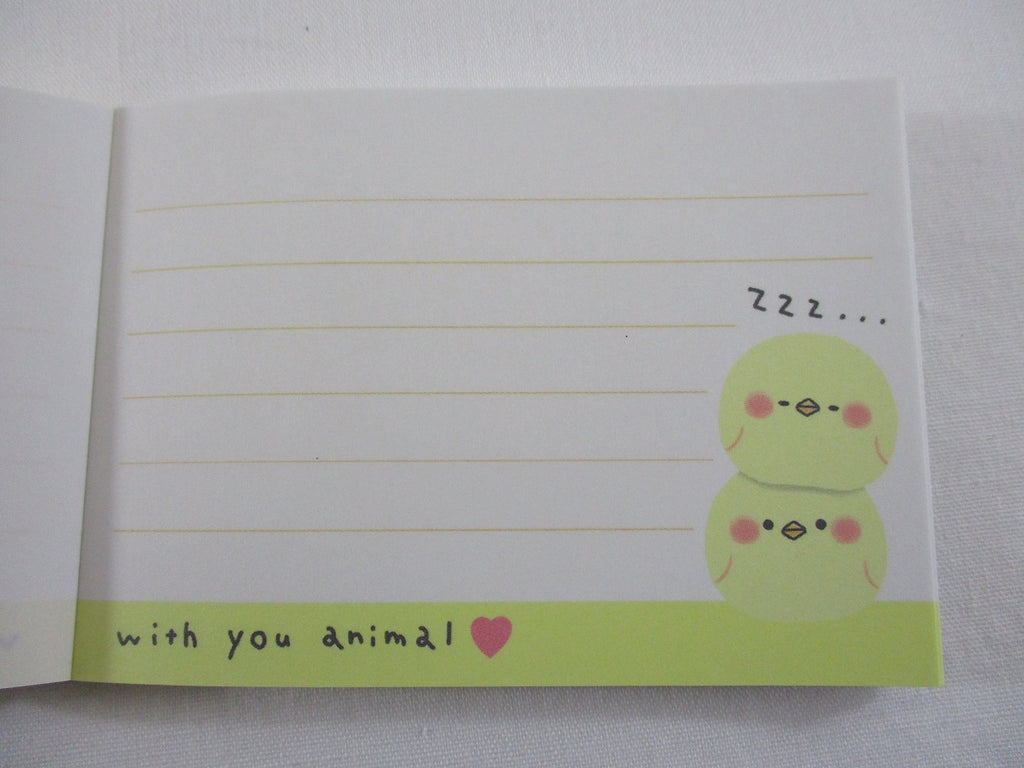 zzz...
with you animal